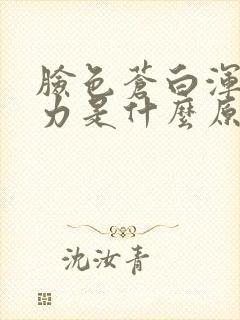 臉色蒼白渾
力是什麼原
沈汝青